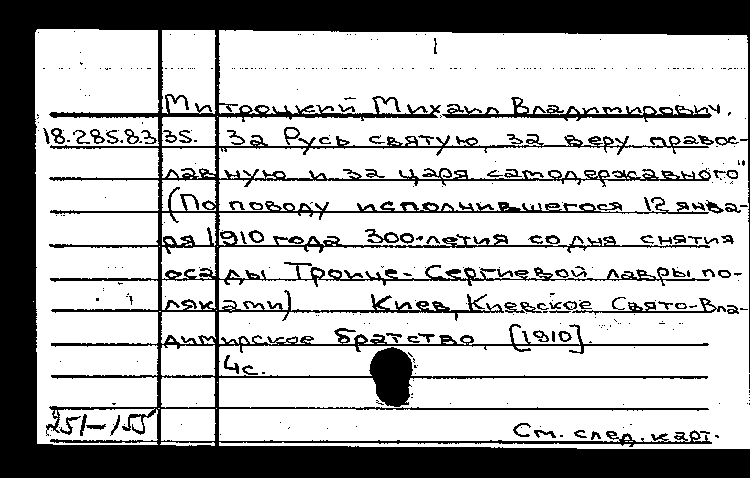 Митроцкий, Михаил Владимирович.
18.285.8.335. "За Русь святую, за веру правос-
лавную и за царя самодержавного"
(По поводу исполнившегося 12 янва-
ря 1910 года 300-летия со дня снятия
осады Троице-Сергиевой лавры по-
ляками) Киев, Киевское Свято-Вла-
димирское братство, [1910].
4с.
251-155
См. след. карт.